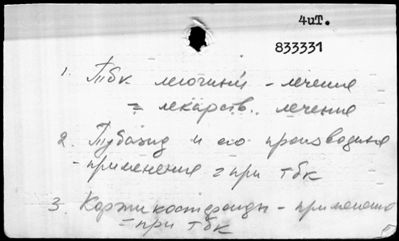 4ит.
833331
1. Тбк легочный - лечение
= лекарств. лечение
2. Тубазид и его производные
- применение = при тбк
3. Кортикостероиды - применение
= при тбк